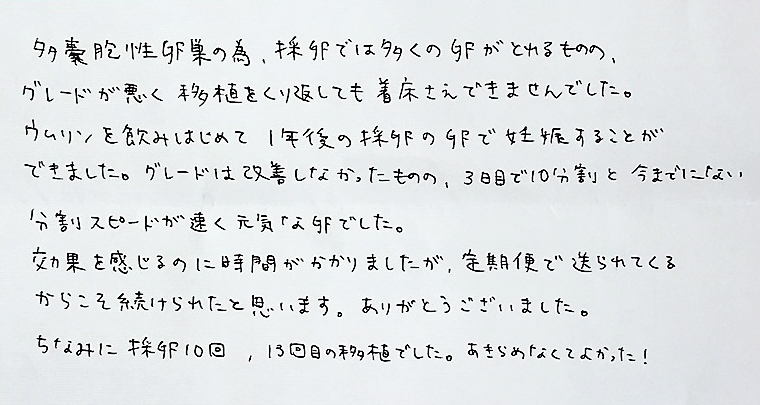 多嚢胞性卵巣の為、採卵では多くの卵がとれるものの、
グレードが悪く移植をくり返しても着床さえできませんでした。
ウムリンを飲みはじめて1年後の採卵の卵で妊娠することが
できました。グレードは改善しなかったものの、3日目で10分割と今までにない
分割スピードが速く元気な卵でした。
効果を感じるのに時間がかかりましたが、定期便で送られてくる
からこそ続けられたと思います。ありがとうございました。
ちなみに採卵10回、13回目の移植でした。あきらめなくてよかった!